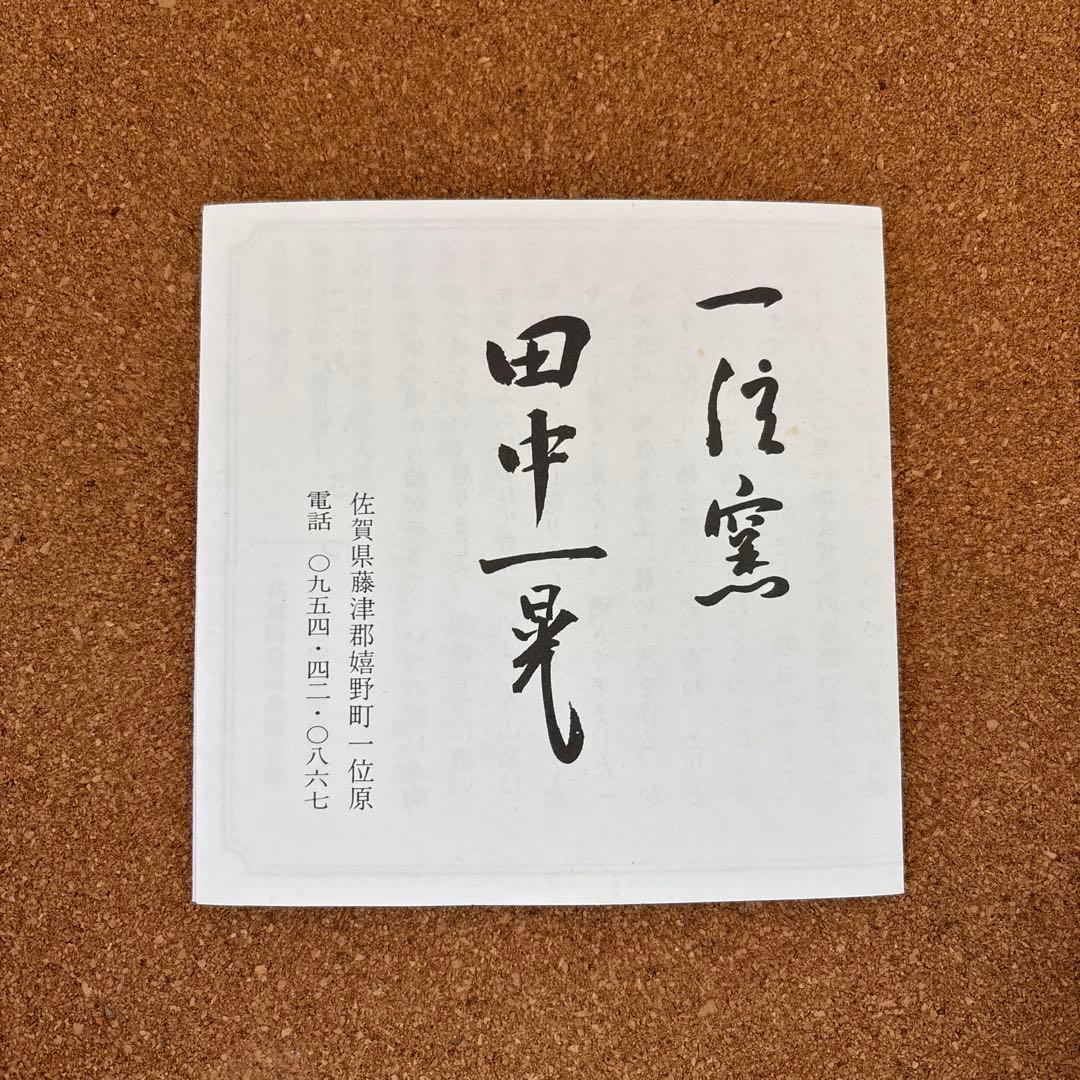 一位窯
田中一晃
佐賀県藤津郡嬉野町一位原
電話 〇九五四・四二・〇八六七